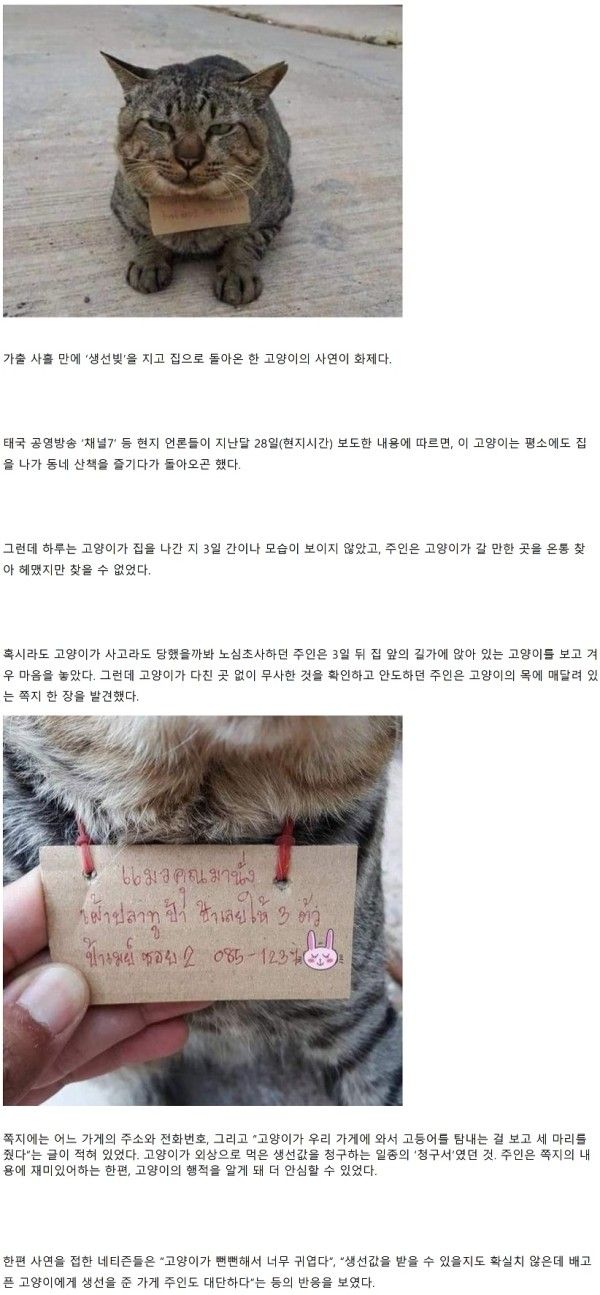 가출 사흘 만에 ‘생선빚’을 지고 집으로 돌아온 한 고양이의 사연이 화제다.
태국 공영방송 ‘채널7’ 등 현지 언론들이 지난달 28일(현지시간) 보도한 내용에 따르면, 이 고양이는 평소에도 집
을 나가 동네 산책을 즐기다가 돌아오곤 했다.
그런데 하루는 고양이가 집을 나간 지 3일 간이나 모습이 보이지 않았고, 주인은 고양이가 갈 만한 곳을 온통 찾
아 헤맸지만 찾을 수 없었다.
혹시라도 고양이가 사고라도 당했을까봐 노심초사하던 주인은 3일 뒤 집 앞의 길가에 앉아 있는 고양이를 보고 겨
우 마음을 놓았다. 그런데 고양이가 다친 곳 없이 무사한 것을 확인하고 안도하던 주인은 고양이의 목에 매달려 있
는 쪽지 한 장을 발견했다.
แมวคุณมานั่ง
เฝ้าปลาทูป้า ป้าเลยให้ 3 ตัว
ป้าเมย์ ซอย 2 085-123
쪽지에는 어느 가게의 주소와 전화번호, 그리고 “고양이가 우리 가게에 와서 고등어를 탐내는 걸 보고 세 마리를
줬다”는 글이 적혀 있었다. 고양이가 외상으로 먹은 생선값을 청구하는 일종의 ‘청구서’였던 것. 주인은 쪽지의 내
용에 재미있어하는 한편, 고양이의 행적을 알게 돼 더 안심할 수 있었다.
한편 사연을 접한 네티즌들은 “고양이가 뻔뻔해서 너무 귀엽다”, “생선값을 받을 수 있을지도 확실치 않은데 배고
픈 고양이에게 생선을 준 가게 주인도 대단하다”는 등의 반응을 보였다.